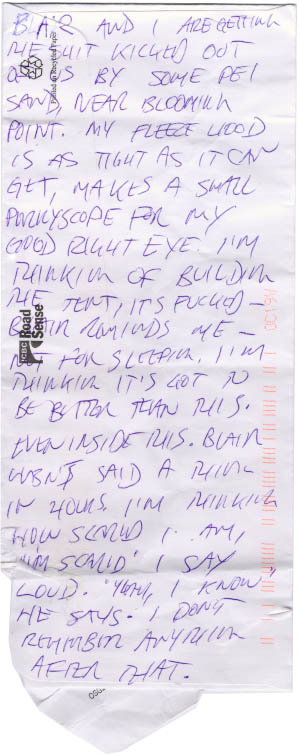 BLAIR AND I ARE GETTING
THE SHIT KICKED OUT
OF US BY SOME PEI
SAND, NEAR BLOOMING
POINT. MY FLEEZE HOOD
IS AS TIGHT AS IT CAN
GET, MAKES A SMALL
PORKYSCOPE FOR MY
GOOD RIGHT EYE. I'M
THINKING OF BUILDING
THE TENT, IT'S FUCKED —
BLAIR REMINDS ME —
NOT FOR SLEEPIN, I'M
THINKIN IT'S GOT TO
BE BETTER THAN THIS.
EVEN INSIDE THIS. BLAIR
HASN'T SAID A THING
IN HOURS. I'M THINKING
HOW SCARED I AM,
'I'M SCARED' I SAY
LOUD. 'YEAH, I KNOW'
HE SAYS. I DON'T
REMEMBER ANYTHING
AFTER THAT.
Printed on Recycled Paper
ICBC Road Sense
OCT 94